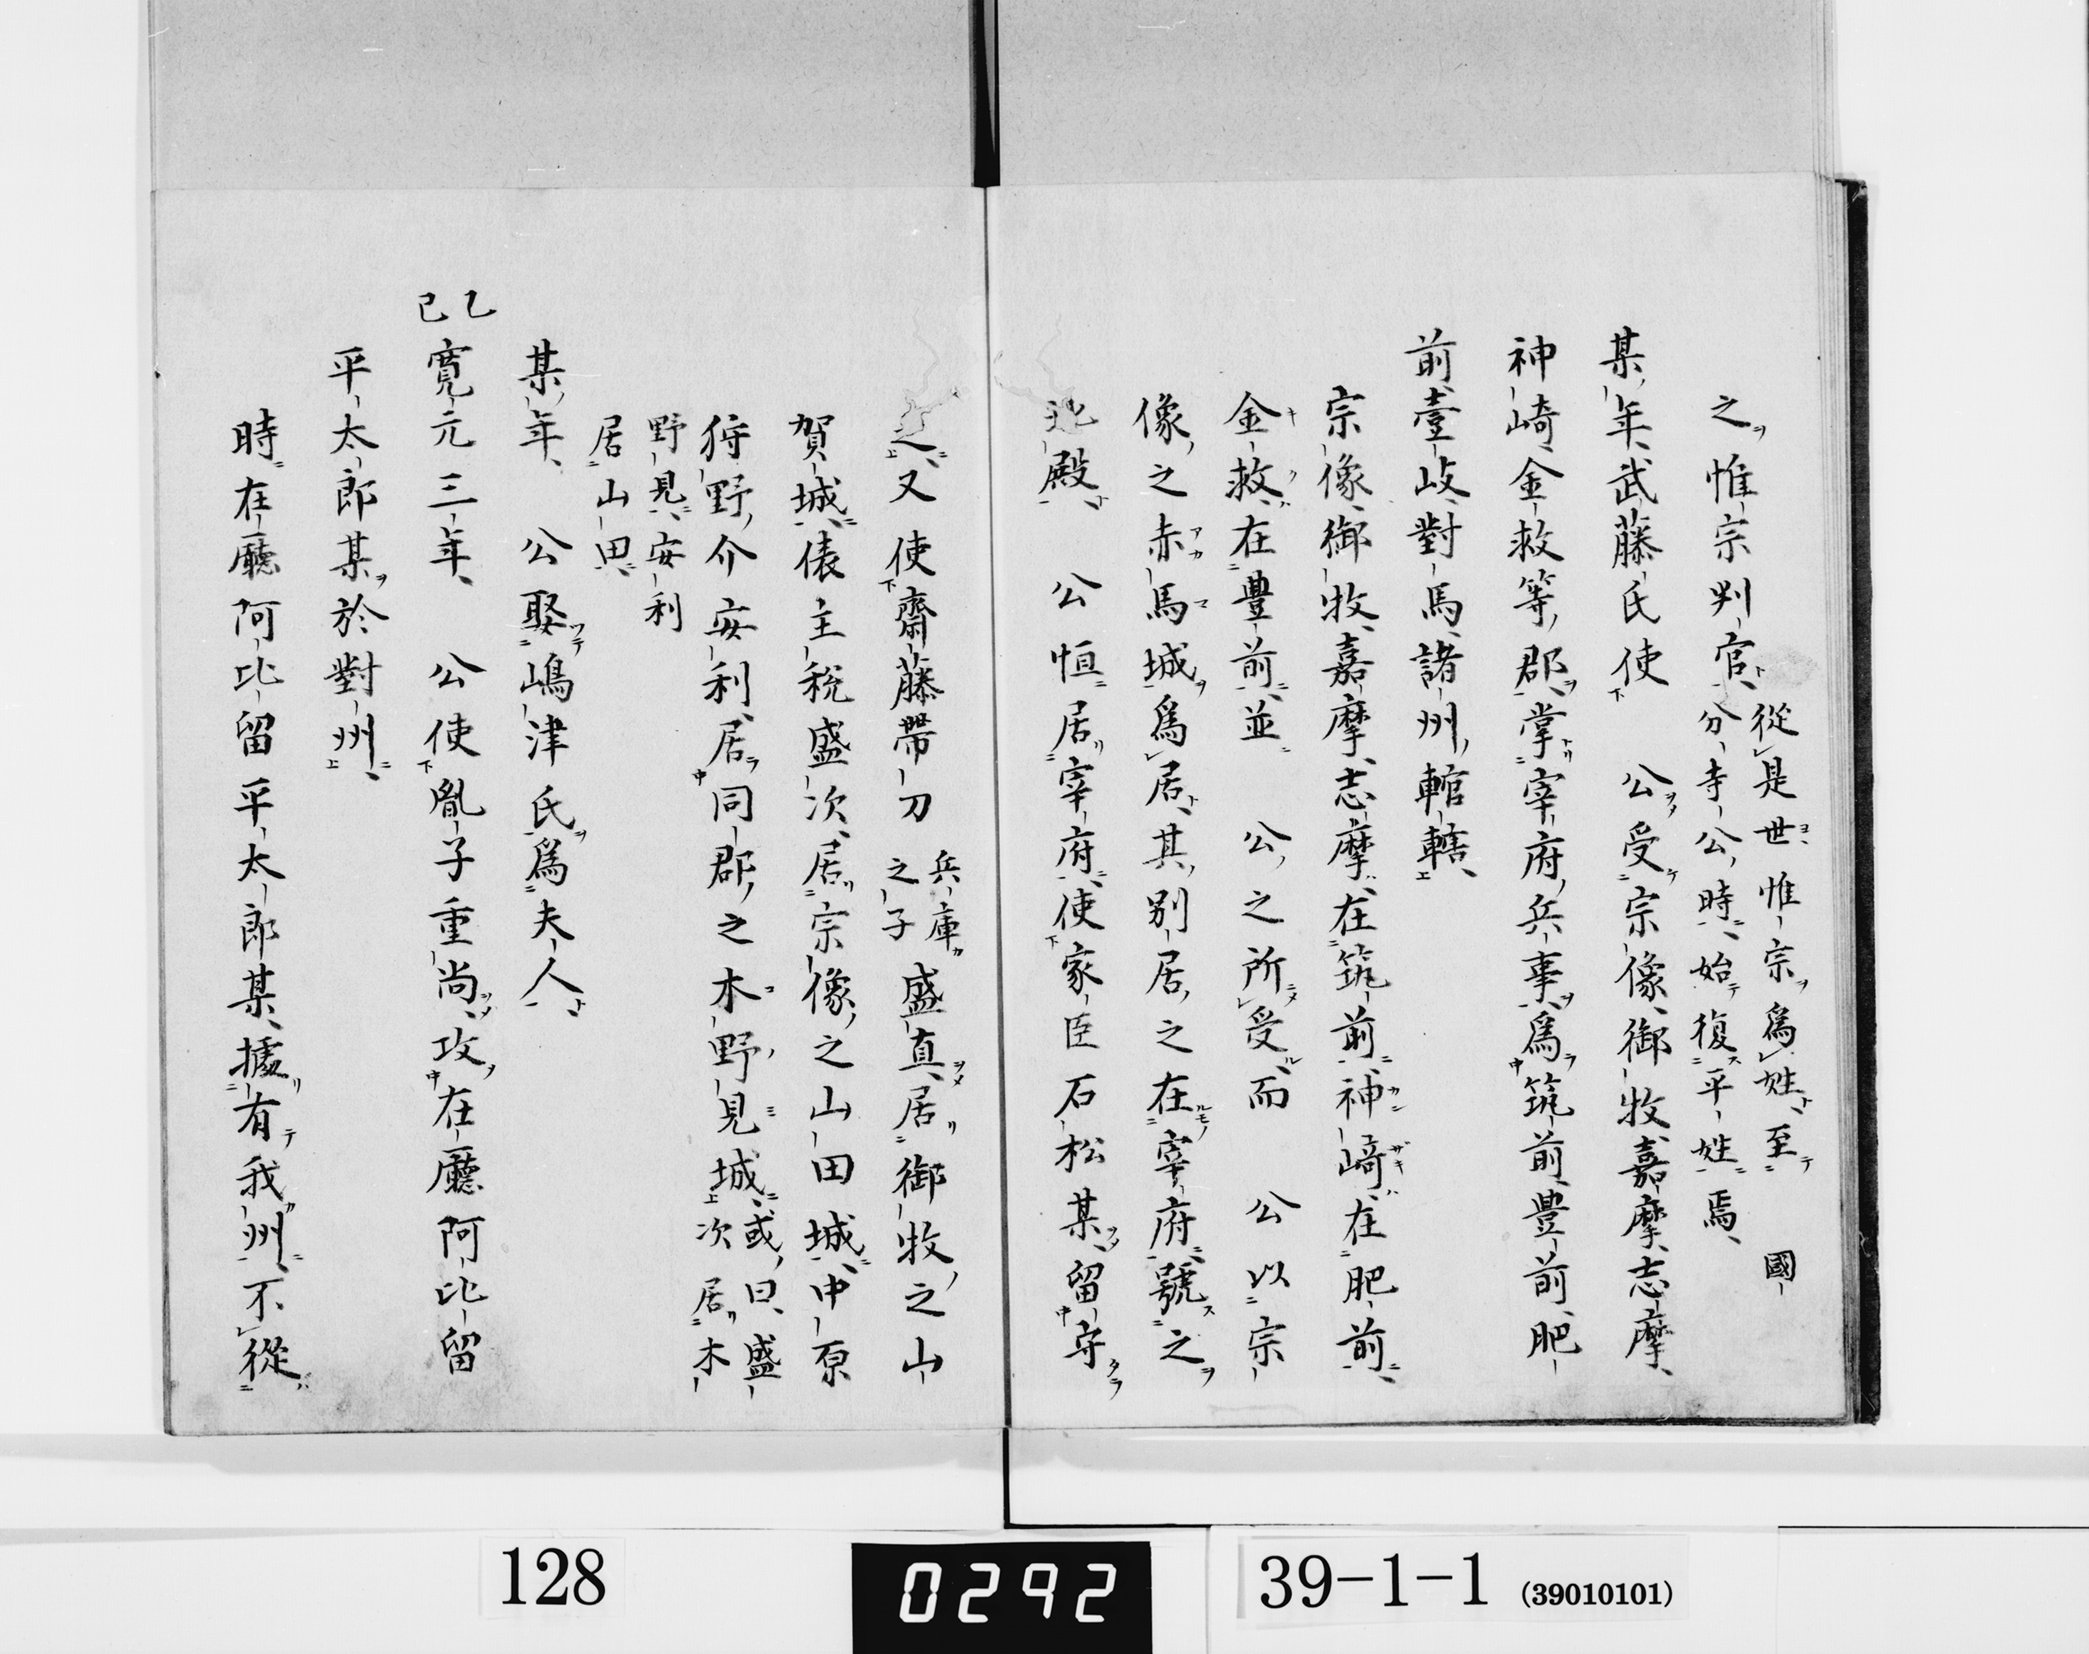 之惟宗判官從是世惟宗爲姓至國
分寺公時始復平姓焉
某年武藤氏使　公受宗像御牧嘉摩志摩
神崎金救等郡掌宰府兵事爲筑前豊前肥
前壹岐對馬諸州轄轄
宗像御牧嘉摩志摩在筑前神﨑在肥前
金救在豊前並　公之所受而　公以宗
像之赤馬城爲居其別居之在宰府號之
殿　公恒居宰府使家臣石松某留守
之又使齋藤帶刀兵庫之子盛真居御牧之山
賀城俵主税盛次居宗像之山田城中原
狩野介安利居同郡之木野見城或曰盛次居木
野見安利
居山田
某年　公娶嶋津氏爲夫人
乙巳
寛元三年　公使胤子重尚攻在廳阿比留
平太郎某於對州
時在廳阿比留平太郎某據有我州不從
128
0292
39-1-1 (39010101)